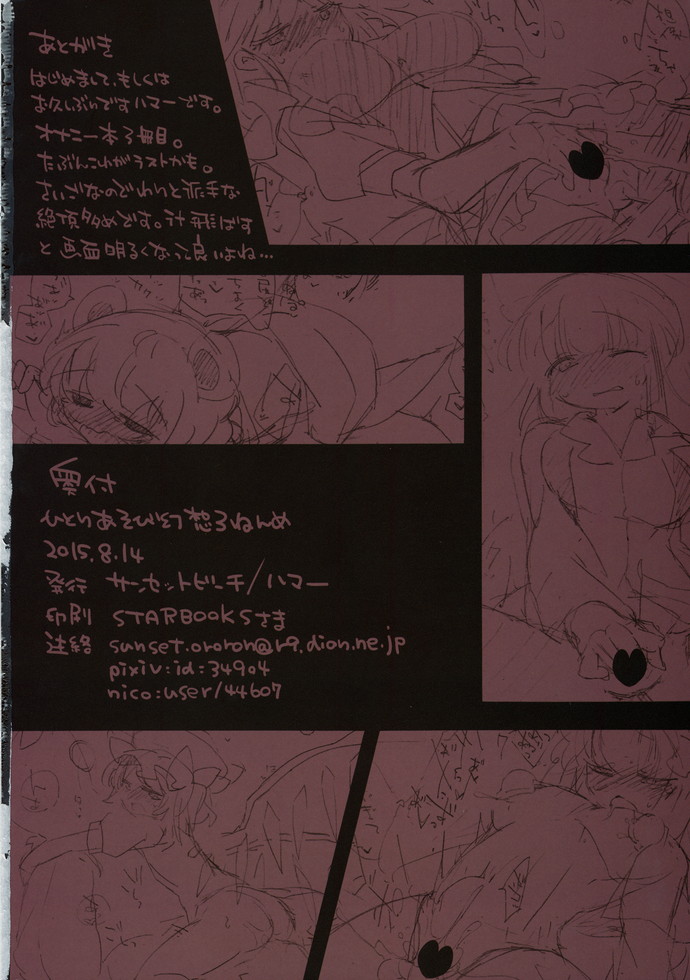 あとがき
はじめまして、もしくは
お久しぶりですハマーです。
オナニー本3冊目。
たぶんこれがラストかも。
さいごなのでわりと派手な
絶頂多めです。汁飛ばす
と画面明るくなって良いよね…
奥付
ひとりあそび幻想3ねんめ
2015.8.14
発行 サンセットビーチ/ハマー
印刷 STARBOOKSさま
連絡 sunset.ororon@r9.dion.ne.jp
pixiv:id:34904
nico:user/44607